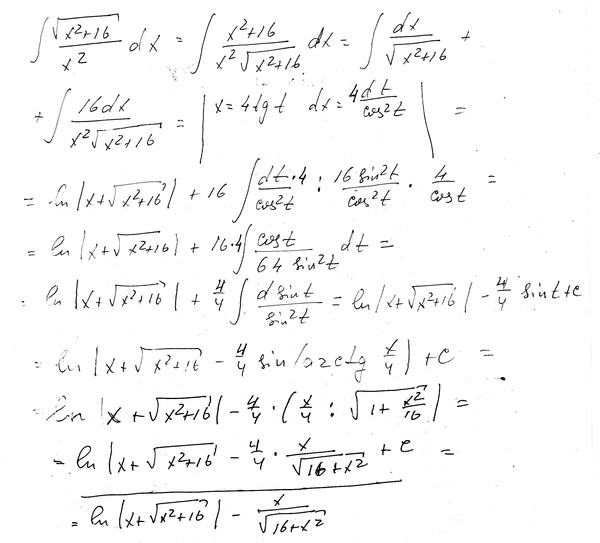 ∫ √(x²+16) / x² dx = ∫ (x²+16) / (x² √(x²+16)) dx = ∫ dx / √(x²+16) +
+ ∫ 16dx / (x² √(x²+16)) = | x = 4 tg t dx = 4dt / cos²t | =
= ln |x+√(x²+16)| + 16 ∫ dt·4 / cos²t : 16 sin²t / cos²t · 4 / cos t =
= ln |x+√(x²+16)| + 16·4 ∫ cos t / (64 sin²t) dt =
= ln |x+√(x²+16)| + 4/4 ∫ d sin t / sin²t = ln |x+√(x²+16)| - 4/4 sin t + c
= ln |x+√(x²+16) - 4/4 sin (arctg x/4) + c =
= ln |x+√(x²+16)| - 4/4 · (x/4 : √(1+x²/16) | =
= ln |x+√(x²+16) - 4/4 · x / √(16+x²) + c =
= ln |x+√(x²+16)| - x / √(16+x²)